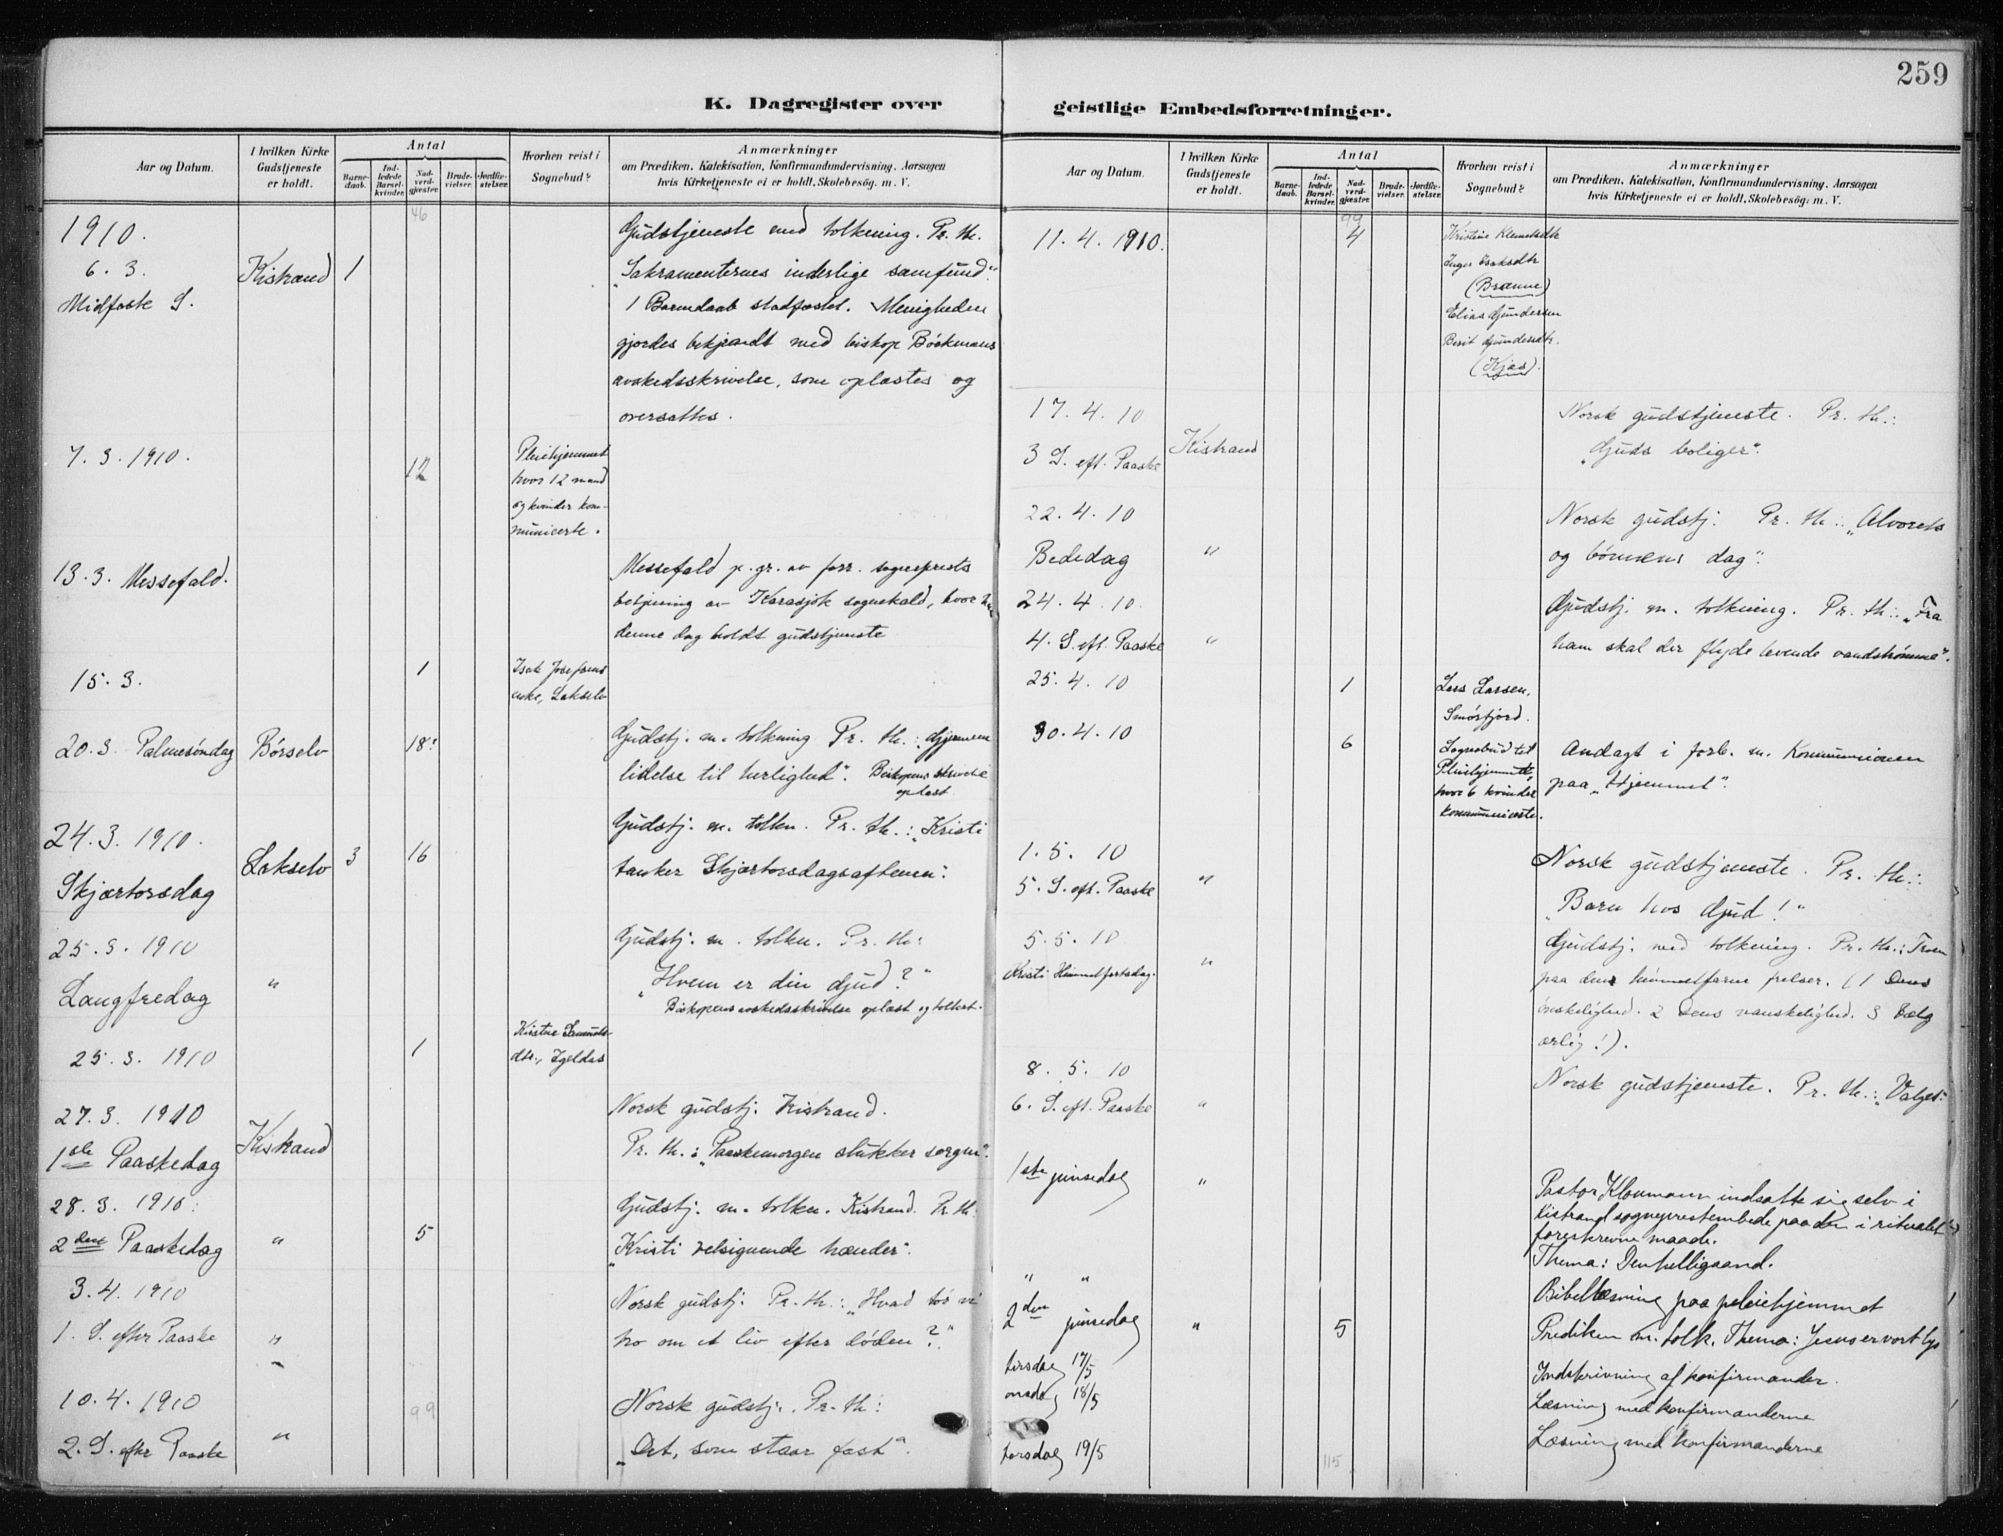 259
K. Dagregister over
geistlige Embedsforretninger.
Aar og Datum.
I hvilken Kirke Gudstjeneste er holdt.
Antal
Barnedaab.
Indledede Barselkvinder.
Nadverdgjæster.
Brudevielser.
Jordfæstelser.
Hvorhen reist i Sognebud?
Anmærkninger
om Prædiken, Katekisation, Konfirmandundervisning, Aarsagen
hvis Kirketjeneste ei er holdt, Skolebesøg: m. V.
46
1910.
6. 3.
Midfaste S.
Kistrand
1
Gudstjeneste med tolkning. Pr. th.
"Sakramenternes inderlige samfund".
1 Barnedaab stadfæstet. Menigheden
gjordes bekjendt med biskop Bøckmans
avskedsskrivelse, som oplæstes og
oversattes.
7. 3. 1910.
12
Pleiehjemmet
hvor 12 mænd
og kvinder kom-
municerte.
13. 3. Messefald.
Messefald p. gr. av forr. sogneprests
betjening av Karasjok sognekald, hvor han
denne dag holdt gudstjeneste
15. 3.
1
Isak Josefsens
enke, Lakselv
20. 3. Palmesøndag
Børselv
18?
Gudstj. m. tolkning Pr. th.: "Gjennem
lidelse til herlighed". Biskopens skrivelse
oplæst.
24. 3. 1910.
Skjærtorsdag
Lakselv
3
16
Gudstj. m. tolkn. Pr. th.: "Kristi
tanker Skjærtorsdagsaftenen".
25. 3. 1910
Langfredag
"
Gudstj. m. tolkn. Pr. th:
"Hvem er din Gud?"
Biskopens avskedsskrivelse oplæst og tolket.
25. 3. 1910
1
Kirstine Samuels-
dtr., Igeldas
27. 3. 1910
1ste Paaskedag
Kistrand
Norsk gudstj. Kistrand.
Pr. th.: "Paaskemorgen slukker sorgen".
28. 3. 1910.
2den Paaskedag
"
5
Gudstj. m. tolkn. Kistrand. Pr. th:
"Kristi velsignende hænder".
3. 4. 1910
1. S. efter Paaske
"
Norsk gudstj. Pr. th.: "Hvad tør vi
tro om et liv efter døden?"
10. 4. 1910
2. S. efter Paaske
"
99
Norsk gudstj. Pr. th:
"Det, som staar fast".
Aar og Datum.
I hvilken Kirke Gudstjeneste er holdt.
Antal
Barnedaab.
Indledede Barselkvinder.
Nadverdgjæster.
Brudevielser.
Jordfæstelser.
Hvorhen reist i Sognebud?
Anmærkninger
om Prædiken, Katekisation, Konfirmandundervisning, Aarsagen
hvis Kirketjeneste ei er holdt, Skolebesøg: m. V.
99
11. 4. 1910.
4
Kristine Klemetsdtr
Inger Isaksdtr
(Brænne)
Elias Gundersen
Berit Gundersdtr.
(Kjæs).
17. 4. 10
3 S. eft. Paaske
Kistrand
Norsk gudstjeneste. Pr. th.:
"Guds boliger".
22. 4. 10
Bededag
"
Norsk gudstj. Pr. th.: "Alvorets
og bønnens dag".
24. 4. 10.
4. S. eft. Paaske
"
Gudstj. m. tolkning. Pr. th.: "Fra
ham skal der flyde levende vandstrømme".
25. 4. 10
1
Lars Larsen,
Smørfjord.
30. 4. 10
6
Sognebud til
Pleiehjemmet,
hvor 6 kvinder
kommunicerte.
Andagt i forb. m. Kommunionen
paa "Hjemmet".
1. 5. 10
5. S. eft. Paaske
"
Norsk gudstjeneste. Pr. th.:
"Barn hos Gud!"
5. 5. 10
Kristi Himmelfartsdag.
"
Gudstj. med tolkning. Pr. th.: Troen
paa den himmelfarne frelser. (1 Dens
ønskelighed. 2 Dens vanskelighed. 3 Vælg
ærlig!).
8. 5. 10
6. S. eft. Paaske
"
Norsk gudstjeneste. Pr. th.: "Valget".
1ste pinsedag
"
Pastor Kloumann indsatte sig selv i
Kistrand sogneprestembede paa den i ritualet
foreskrevne maade.
Thema: Den helligaand.
" "
Bibellæsning paa pleiehjemmet
2den pinsedag
"
5
Prediken m. tolk. Thema: Jesus er vort lys
tirsdag 17/5
Indskrivning af konfirmander.
onsdag 18/5
Læsning med konfirmanderne
torsdag 19/5
115
Læsning med konfirmanderne